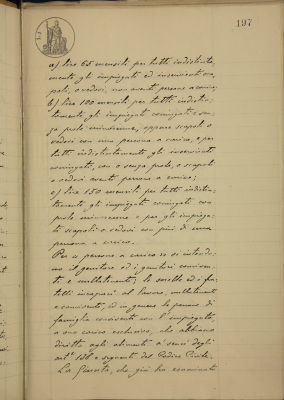 197
a) lire 65 mensili per tutti indistinta-
mente gli impiegati ed inservienti sca-
poli, o vedovi, non aventi persone a carico;
b) lire 100 mensili per tutti indistin-
tamente gli impiegati coniugati e sen-
za prole minorenne, oppure scapoli o
vedovi con una persona a carico, e per
tutti indistintamente gli inservienti
coniugati, con o senza prole, o scapoli
o vedovi aventi persone a carico;
c) lire 150 mensili per tutti indistin-
tamente gli impiegati coniugati con
prole minorenne e per gli impiega-
ti scapoli o vedovi con più di una
persona a carico.
Per persone a carico si intendo-
no il genitore ed i genitori conviven-
ti e nullatenenti; le sorelle ed i fra-
telli incapaci al lavoro nullatenenti
e conviventi, ed in genere le persone di
famiglia conviventi con l'impiegato
a suo carico esclusivo, che abbiano
diritto agli alimenti a sensi degli
art. 138 e seguenti del Codice Civile.
La Giunta, che già ha esaminato